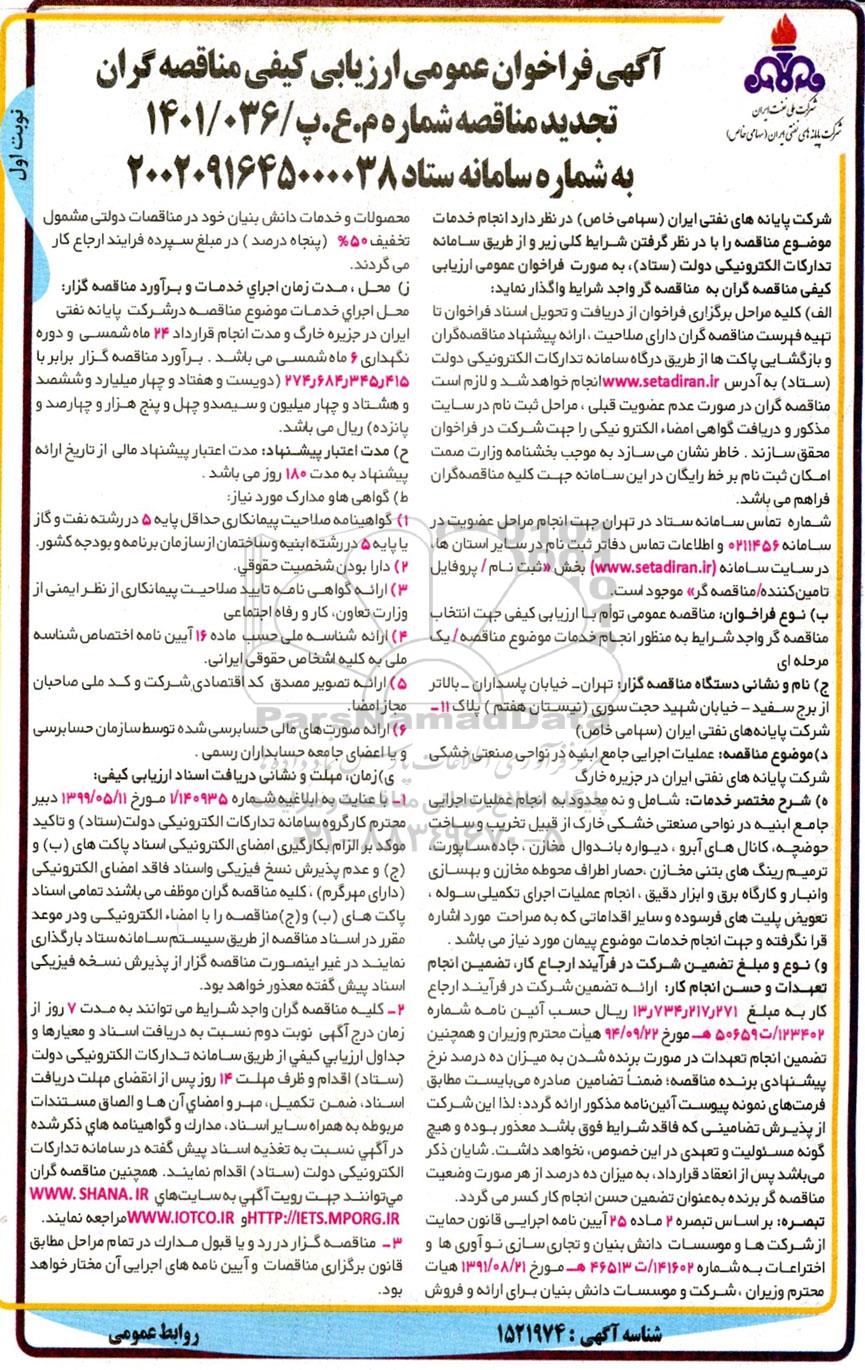 شرکت ملی نفت ایران
شرکت پایانه های نفتی ایران (سهامی خاص)
آگهی فراخوان عمومی ارزیابی کیفی مناقصه گران
تجدید مناقصه شماره م.ع.پ/۱۴۰۱/۰۳۶
به شماره سامانه ستاد ۲۰۰۲۰۹۱۶۴۵۰۰۰۰۳۸
نوبت اول
شرکت پایانه های نفتی ایران (سهامی خاص) در نظر دارد انجام خدمات
موضوع مناقصه را با در نظر گرفتن شرایط کلی زیر و از طریق سامانه
تدارکات الکترونیکی دولت (ستاد)، به صورت فراخوان عمومی ارزیابی
کیفی مناقصه گران به مناقصه گر واجد شرایط واگذار نماید:
الف) کلیه مراحل برگزاری فراخوان از دریافت و تحویل اسناد فراخوان تا
تهیه فهرست مناقصه گران دارای صلاحیت ، ارائه پیشنهاد مناقصه‌گران
و بازگشایی پاکت ها از طریق درگاه سامانه تدارکات الکترونیکی دولت
(ستاد) به آدرس www.setadiran.ir انجام خواهد شد و لازم است
مناقصه گران در صورت عدم عضویت قبلی ، مراحل ثبت نام در سایت
مذکور و دریافت گواهی امضاء الکترو نیکی را جهت شرکت در فراخوان
محقق سازند . خاطر نشان می سازد به موجب بخشنامه وزارت صمت
امکان ثبت نام بر خط رایگان در این سامانه جهت کلیه مناقصه‌گران
فراهم می باشد.
شماره تماس سامانه ستاد در تهران جهت انجام مراحل عضویت در
سامانه ۰۲۱۱۴۵۶ و اطلاعات تماس دفاتر ثبت نام در سایر استان ها،
در سایت سامانه (www.setadiran.ir) بخش «ثبت نام / پروفایل
تامین‌کننده/مناقصه گر» موجود است.
ب) نوع فراخوان: مناقصه عمومی توام با ارزیابی کیفی جهت انتخاب
مناقصه گر واجد شرایط به منظور انجام خدمات موضوع مناقصه / یک
مرحله ای
ج) نام و نشانی دستگاه مناقصه گزار: تهران- خیابان پاسداران -بالاتر
از برج سفید - خیابان شهید حجت سوری (نیستان هفتم ) پلاک ۱۱-
شرکت پایانه‌های نفتی ایران (سهامی خاص)
د)موضوع مناقصه: عملیات اجرایی جامع ابنیه در نواحی صنعتی خشکی
شرکت پایانه های نفتی ایران در جزیره خارگ
ه) شرح مختصر خدمات: شامل و نه محدود به انجام عملیات اجرایی
جامع ابنیه در نواحی صنعتی خشکی خارک از قبیل تخریب و ساخت
حوضچه، کانال های آبرو ، دیواره باندوال مخازن ، جاده ساپورت،
ترمیم رینگ های بتنی مخازن ،حصار اطراف محوطه مخازن و بهسازی
وانبار و کارگاه برق و ابزار دقیق ، انجام عملیات اجرای تکمیلی سوله ،
تعویض پلیت های فرسوده و سایر اقداماتی که به صراحت مورد اشاره
قرا نگرفته و جهت انجام خدمات موضوع پیمان مورد نیاز می باشد .
و) نوع و مبلغ تضمین شرکت در فرآیند ارجاع کار، تضمین انجام
تعهدات و حسن انجام کار: ارائه تضمین شرکت در فرآیند ارجاع
کار به مبلغ ۱۳٫۷۳۴٫۲۱۷٫۲۷۱ ریال حسب آئین نامه شماره
۱۲۳۴۰۲/ت۵۰۶۵۹ هـ مورخ ۹۴/۰۹/۲۲ هیأت محترم وزیران و همچنین
تضمین انجام تعهدات در صورت برنده شدن به میزان ده درصد نرخ
پیشنهادی برنده مناقصه؛ ضمناً تضامین صادره می‌بایست مطابق
فرمت‌های نمونه پیوست آئین‌نامه مذکور ارائه گردد؛ لذا این شرکت
از پذیرش تضامینی که فاقد شرایط فوق باشد معذور بوده و هیچ
گونه مسئولیت و تعهدی در این خصوص، نخواهد داشت. شایان ذکر
می‌باشد پس از انعقاد قرارداد، به میزان ده درصد از هر صورت وضعیت
مناقصه گر برنده به‌عنوان تضمین حسن انجام کار کسر می گردد.
تبصره: بر اساس تبصره ۲ ماده ۲۵ آیین نامه اجرایی قانون حمایت
از شرکت ها و موسسات دانش بنیان و تجاری سازی نو آوری ها و
اختراعات به شماره ۱۴۱۶۰۲/ت ۴۶۵۱۳ هـ مورخ ۱۳۹۱/۰۸/۲۱ هیات
محترم وزیران ، شرکت و موسسات دانش بنیان برای ارائه و فروش
محصولات و خدمات دانش بنیان خود در مناقصات دولتی مشمول
تخفیف ۵۰% (پنجاه درصد ) در مبلغ سپرده فرایند ارجاع کار
می گردند.
ز) محل ، مدت زمان اجراي خدمات و برآورد مناقصه گزار:
محل اجراي خدمات موضوع مناقصه درشرکت پایانه نفتی
ایران در جزیره خارگ و مدت انجام قرارداد ۲۴ ماه شمسی و دوره
نگهداری ۶ ماه شمسی می باشد . برآورد مناقصه گزار برابر با
۲۷۴٫۶۸۴٫۳۴۵٫۴۱۵ (دویست و هفتاد و چهار میلیارد و ششصد
و هشتاد و چهار میلیون و سیصدو چهل و پنج هزار و چهارصد و
پانزده) ریال می باشد.
ح) مدت اعتبار پیشنهاد: مدت اعتبار پیشنهاد مالی از تاریخ ارائه
پیشنهاد به مدت ۱۸۰ روز می باشد .
ط) گواهی هاو مدارک مورد نیاز:
۱) گواهینامه صلاحیت پیمانکاری حداقل پایه ۵ در رشته نفت و گاز
یا پایه ۵ در رشته ابنیه و ساختمان از سازمان برنامه و بودجه کشور.
۲) دارا بودن شخصیت حقوقي.
۳) ارائه گواهی نامه تایید صلاحیت پیمانکاری از نظر ایمنی از
وزارت تعاون، کار و رفاه اجتماعی
۴) ارائه شناسه ملی حسب ماده ۱۶ آیین نامه اختصاص شناسه
ملی به کلیه اشخاص حقوقی ایرانی.
۵) ارائه تصویر مصدق کد اقتصادی شرکت و کد ملی صاحبان
مجاز امضا.
۶) ارائه صورت‌های مالی حسابرسی شده توسط سازمان حسابرسی
و یا اعضای جامعه حسابداران رسمی .
ی) زمان، مهلت و نشانی دریافت اسناد ارزیابی کیفی:
۱- با عنایت به ابلاغیه شماره ۱/۱۴۰۹۳۵ مورخ ۱۳۹۹/۰۵/۱۱ دبیر
محترم کارگروه سامانه تدارکات الکترونیکی دولت(ستاد) و تاکید
موکد بر الزام بکارگیری امضای الکترونیکی اسناد پاکت های (ب) و
(ج) و عدم پذیرش نسخ فیزیکی واسناد فاقد امضای الکترونیکی
(دارای مهرگرم) ، کلیه مناقصه گران موظف می باشند تمامی اسناد
پاکت های (ب) و(ج)مناقصه را با امضاء الکترونیکی ودر موعد
مقرر در اسناد مناقصه از طریق سیستم سامانه ستاد بارگذاری
نمایند در غیر اینصورت مناقصه گزار از پذیرش نسخه فیزیکی
اسناد پیش گفته معذور خواهد بود.
۲- کلیه مناقصه گران واجد شرایط می توانند به مدت ۷ روز از
زمان درج آگهی نوبت دوم نسبت به دریافت اسناد و معیارها و
جداول ارزیابي کیفي از طریق سامانه تدارکات الکترونیکی دولت
(ستاد) اقدام و ظرف مهلت ۱۴ روز پس از انقضای مهلت دریافت
اسناد، ضمن تکمیل، مهر و امضاي آن ها و الصاق مستندات
مربوطه به همراه سایر اسناد، مدارك و گواهینامه هاي ذکر شده
در آگهي نسبت به تغذیه اسناد پیش گفته در سامانه تدارکات
الکترونیکی دولت (ستاد) اقدام نمایند. همچنین مناقصه گران
مي‌توانند جهت رویت آگهي به سایت‌هاي WWW. SHANA. IR
HTTP://IETS.MPORG.IR و WWW.IOTCO.IR مراجعه نمایند.
۳- مناقصه گزار در رد و یا قبول مدارك در تمام مراحل مطابق
قانون برگزاری مناقصات و آیین نامه های اجرایی آن مختار خواهد
بود.
ParsNamadData
۰۲۱-۸۸۳۴۹۶۷۰-۵
شناسه آگهی : ۱۵۲۱۹۷۴
روابط عمومی